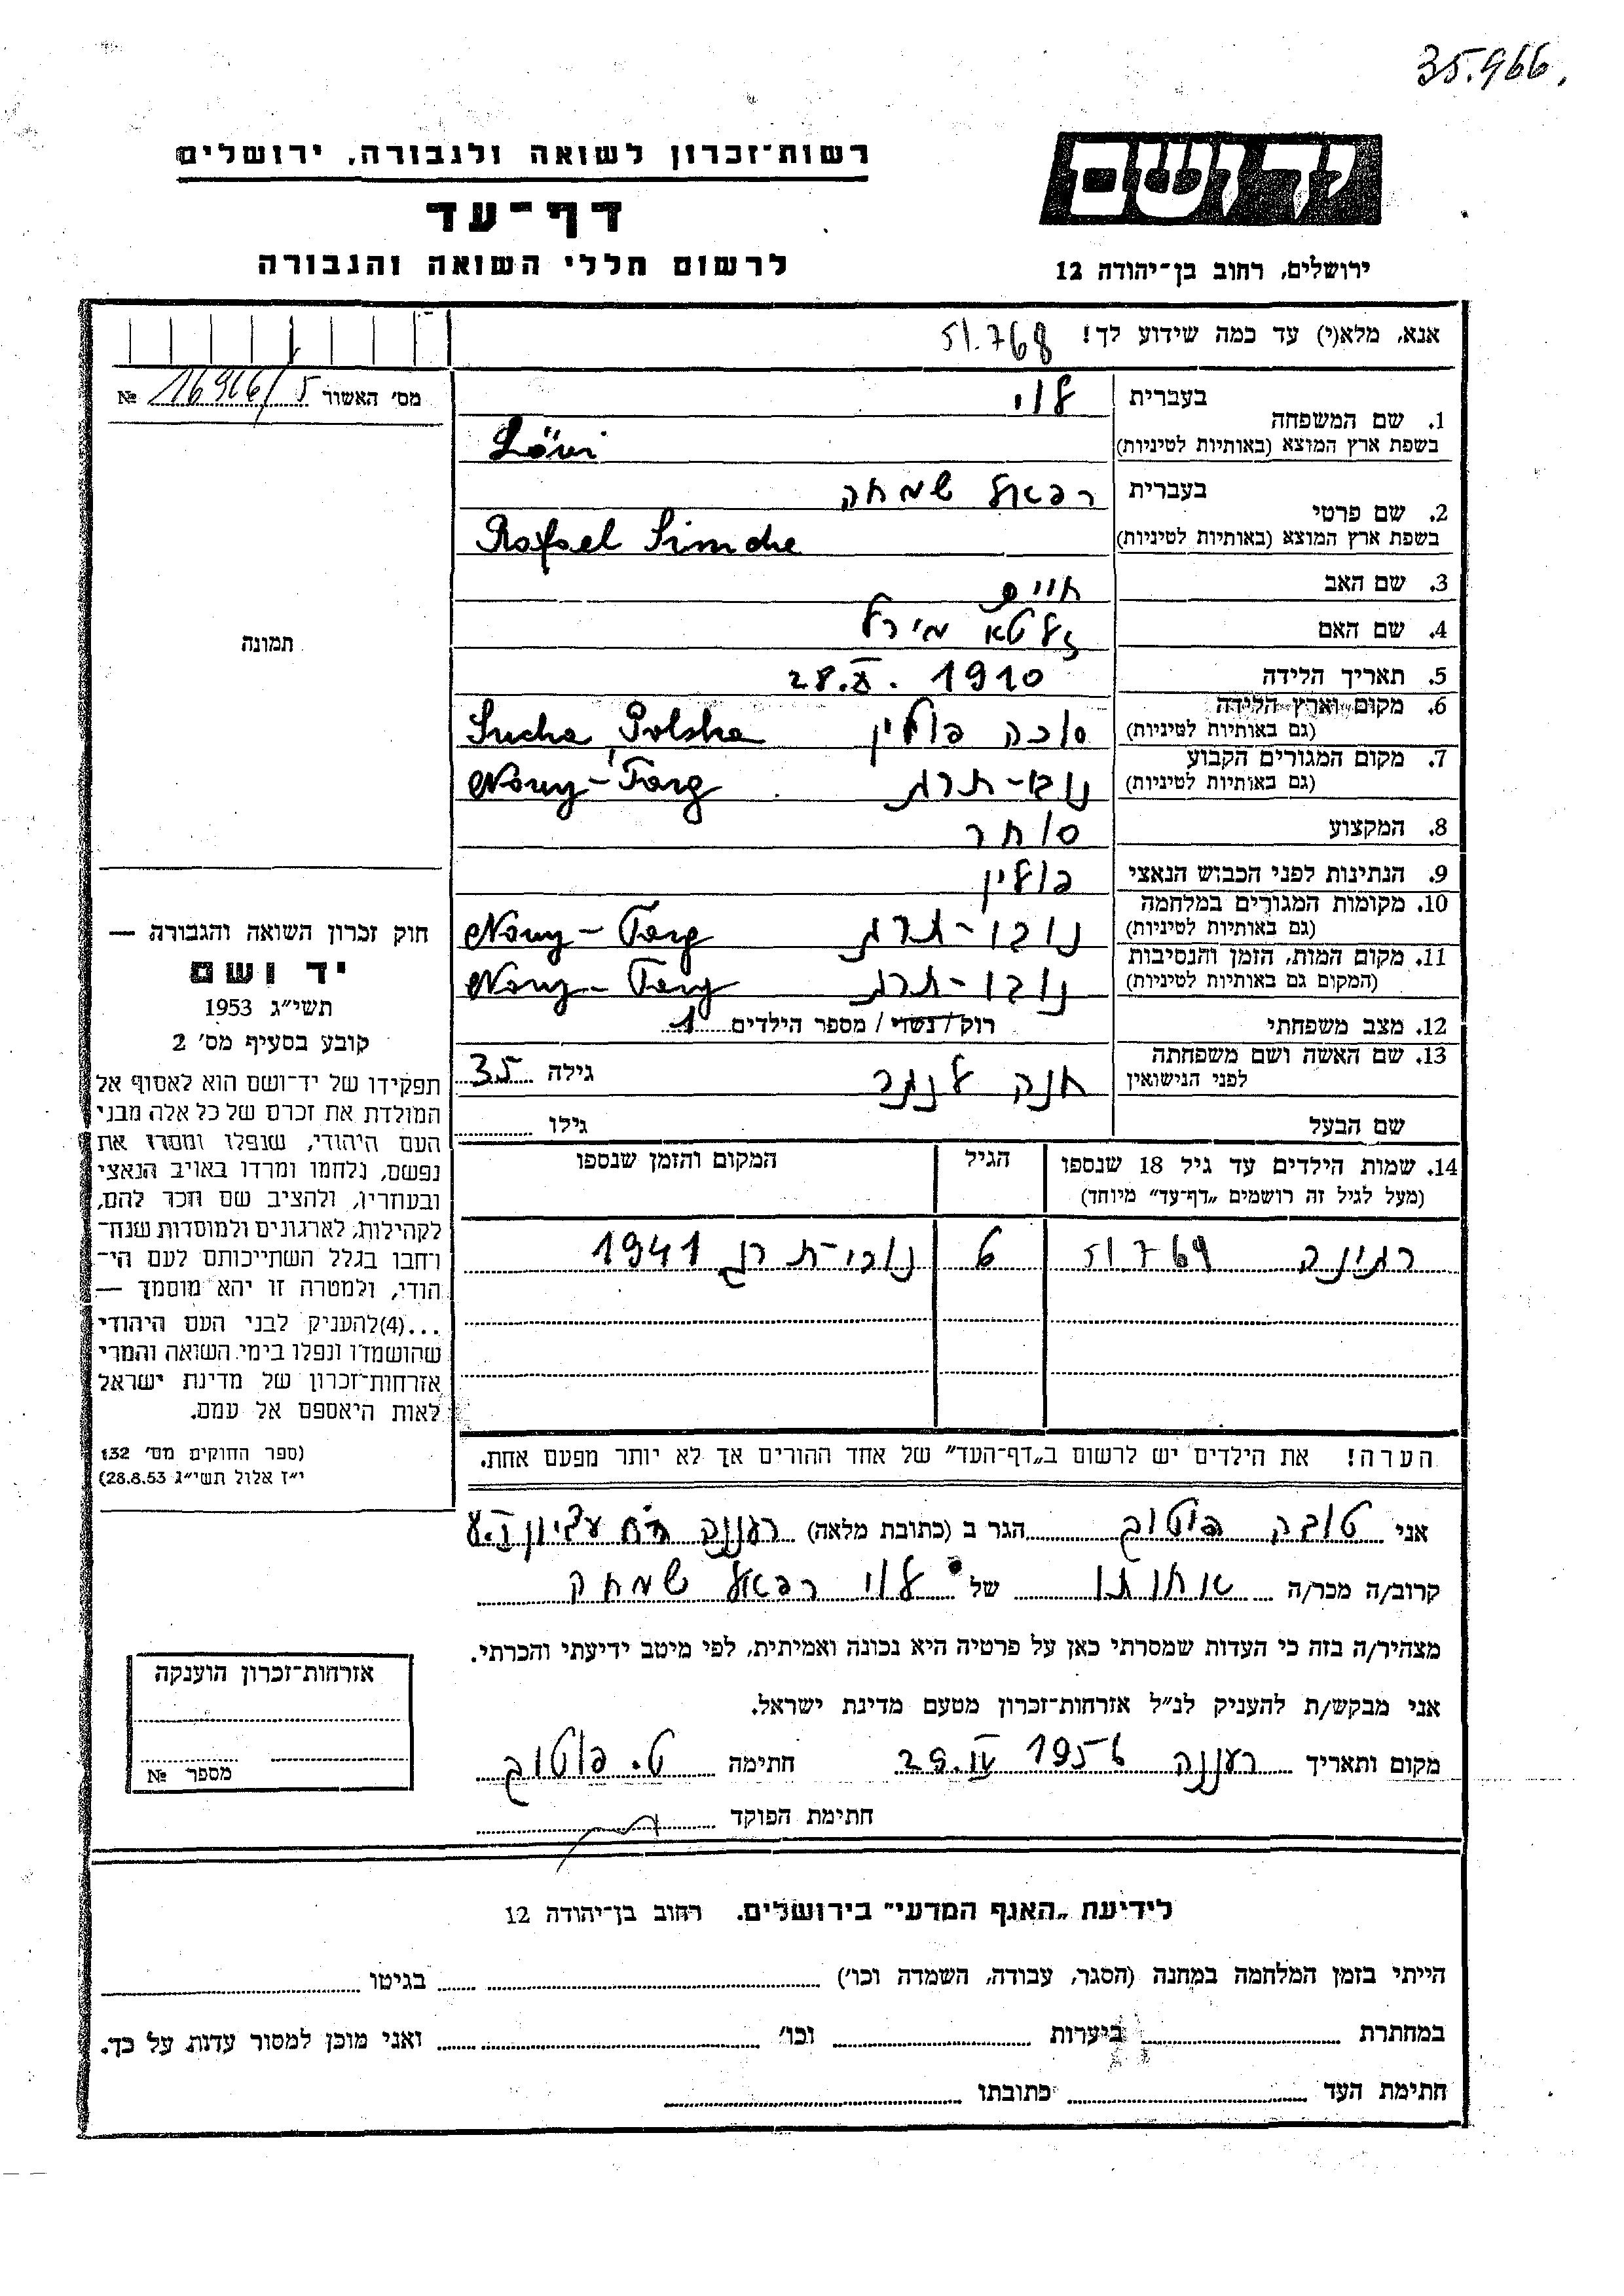 35.966.
יד ושם
רשות־זכרון לשואה ולגבורה, ירושלים
דף־עד
לרשום חללי השואה והגבורה
ירושלים, רחוב בן־יהודה 12
אנא, מלא(י) עד כמה שידוע לך! 51.768
מס׳ האשור № 16946/5
תמונה
1. שם המשפחה בעברית לוי
בשפת ארץ המוצא (באותיות לטיניות) Löwi
2. שם פרטי בעברית רפאל שמחה
בשפת ארץ המוצא (באותיות לטיניות) Rafael Simche
3. שם האב חיים
4. שם האם זלטא מירל
5. תאריך הלידה 1910 .28.X
6. מקום וארץ הלידה (גם באותיות לטיניות) סוכה פולין Sucha, Polska
7. מקום המגורים הקבוע (גם באותיות לטיניות) נובי-תרג Nowy-Targ
8. המקצוע סוחר
9. הנתינות לפני הכבוש הנאצי פולין
10. מקומות המגורים במלחמה (גם באותיות לטיניות) נובי-תרג Nowy-Targ
11. מקום המות, הזמן והנסיבות (המקום גם באותיות לטיניות) נובי-תרג Nowy-Targ
12. מצב משפחתי רוק/נשוי/ מספר הילדים 1
13. שם האשה ושם משפחתה לפני הנישואין חנה לנגר גילה 35
שם הבעל גילו
14. שמות הילדים עד גיל 18 שנספו הגיל המקום והזמן שנספו
(מעל לגיל זה רושמים „דף־עד״ מיוחד)
רגינה 51769 6 נובי-תרג 1941
הערה! את הילדים יש לרשום ב„דף־העד״ של אחד ההורים אך לא יותר מפעם אחת.
חוק זכרון השואה והגבורה —
יד ושם
תשי״ג 1953
קובע בסעיף מס׳ 2
תפקידו של יד־ושם הוא לאסוף אל
המולדת את זכרם של כל אלה מבני
העם היהודי, שנפלו ומסרו את
נפשם, נלחמו ומרדו באויב הנאצי
ובעוזריו, ולהציב שם וזכר להם,
לקהילות, לארגונים ולמוסדות שנח־
רחבו בגלל השתייכותם לעם הי־
הודי, ולמטרה זו יהא מוסמך —
...(4)להעניק לבני העם היהודי
שהושמדו ונפלו בימי השואה והמרי
אזרחות־זכרון של מדינת ישראל
לאות היאספם אל עמם.
(ספר החוקים מס׳ 132
י״ז אלול תשי״ג 28.8.53)
אני טובה פוטוק הגר ב (כתובת מלאה) רעננה רח עציון
קרוב/ה מכר/ה אחותו של לוי רפאל שמחה
מצהיר/ה בזה כי העדות שמסרתי כאן על פרטיה היא נכונה ואמיתית, לפי מיטב ידיעתי והכרתי.
אני מבקש/ת להעניק לנ״ל אזרחות־זכרון מטעם מדינת ישראל.
מקום ותאריך רעננה 1956 29.IV חתימה ט. פוטוק
חתימת הפוקד
אזרחות־זכרון הוענקה
מספר №
לידיעת „האגף המדעי״ בירושלים. רחוב בן־יהודה 12
הייתי בזמן המלחמה במחנה (הסגר, עבודה, השמדה וכו׳) בגיטו
במחתרת ביערות וכו׳ ואני מוכן למסור עדות על כך.
חתימת העד כתובתו